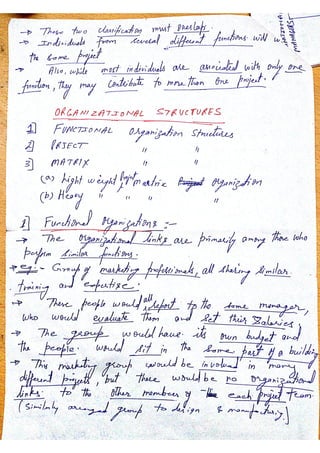 → These two classification must overlap.
→ Individuals from several different functions will w
the same project
→ Also, while most individuals are associated with only one
function, they may contribute to more than one project.
ORGANIZATIONAL STRUCTURES
1] FUNCTIONAL organization structures
2] PRJECT " "
3] MATRIX " "
(a) Light weight Project metric organization
(b) Heavy " " " "
1] Functional organizations :-
→ The organizational links are primarily among those who
perform similar functions.
→ eg:- Group of marketing professionals, all sharing similar
training and expertise.
→ These people would all report to the same manager,
who would evaluate them and set their salaries.
→ The group would have its own budget and
the people would sit in the same part of a building
→ This marketing group would be involved in many
different projects, but there would be no organizational
links to the other members of the each project team
[Similarly arranged group to design & manufacturing.]